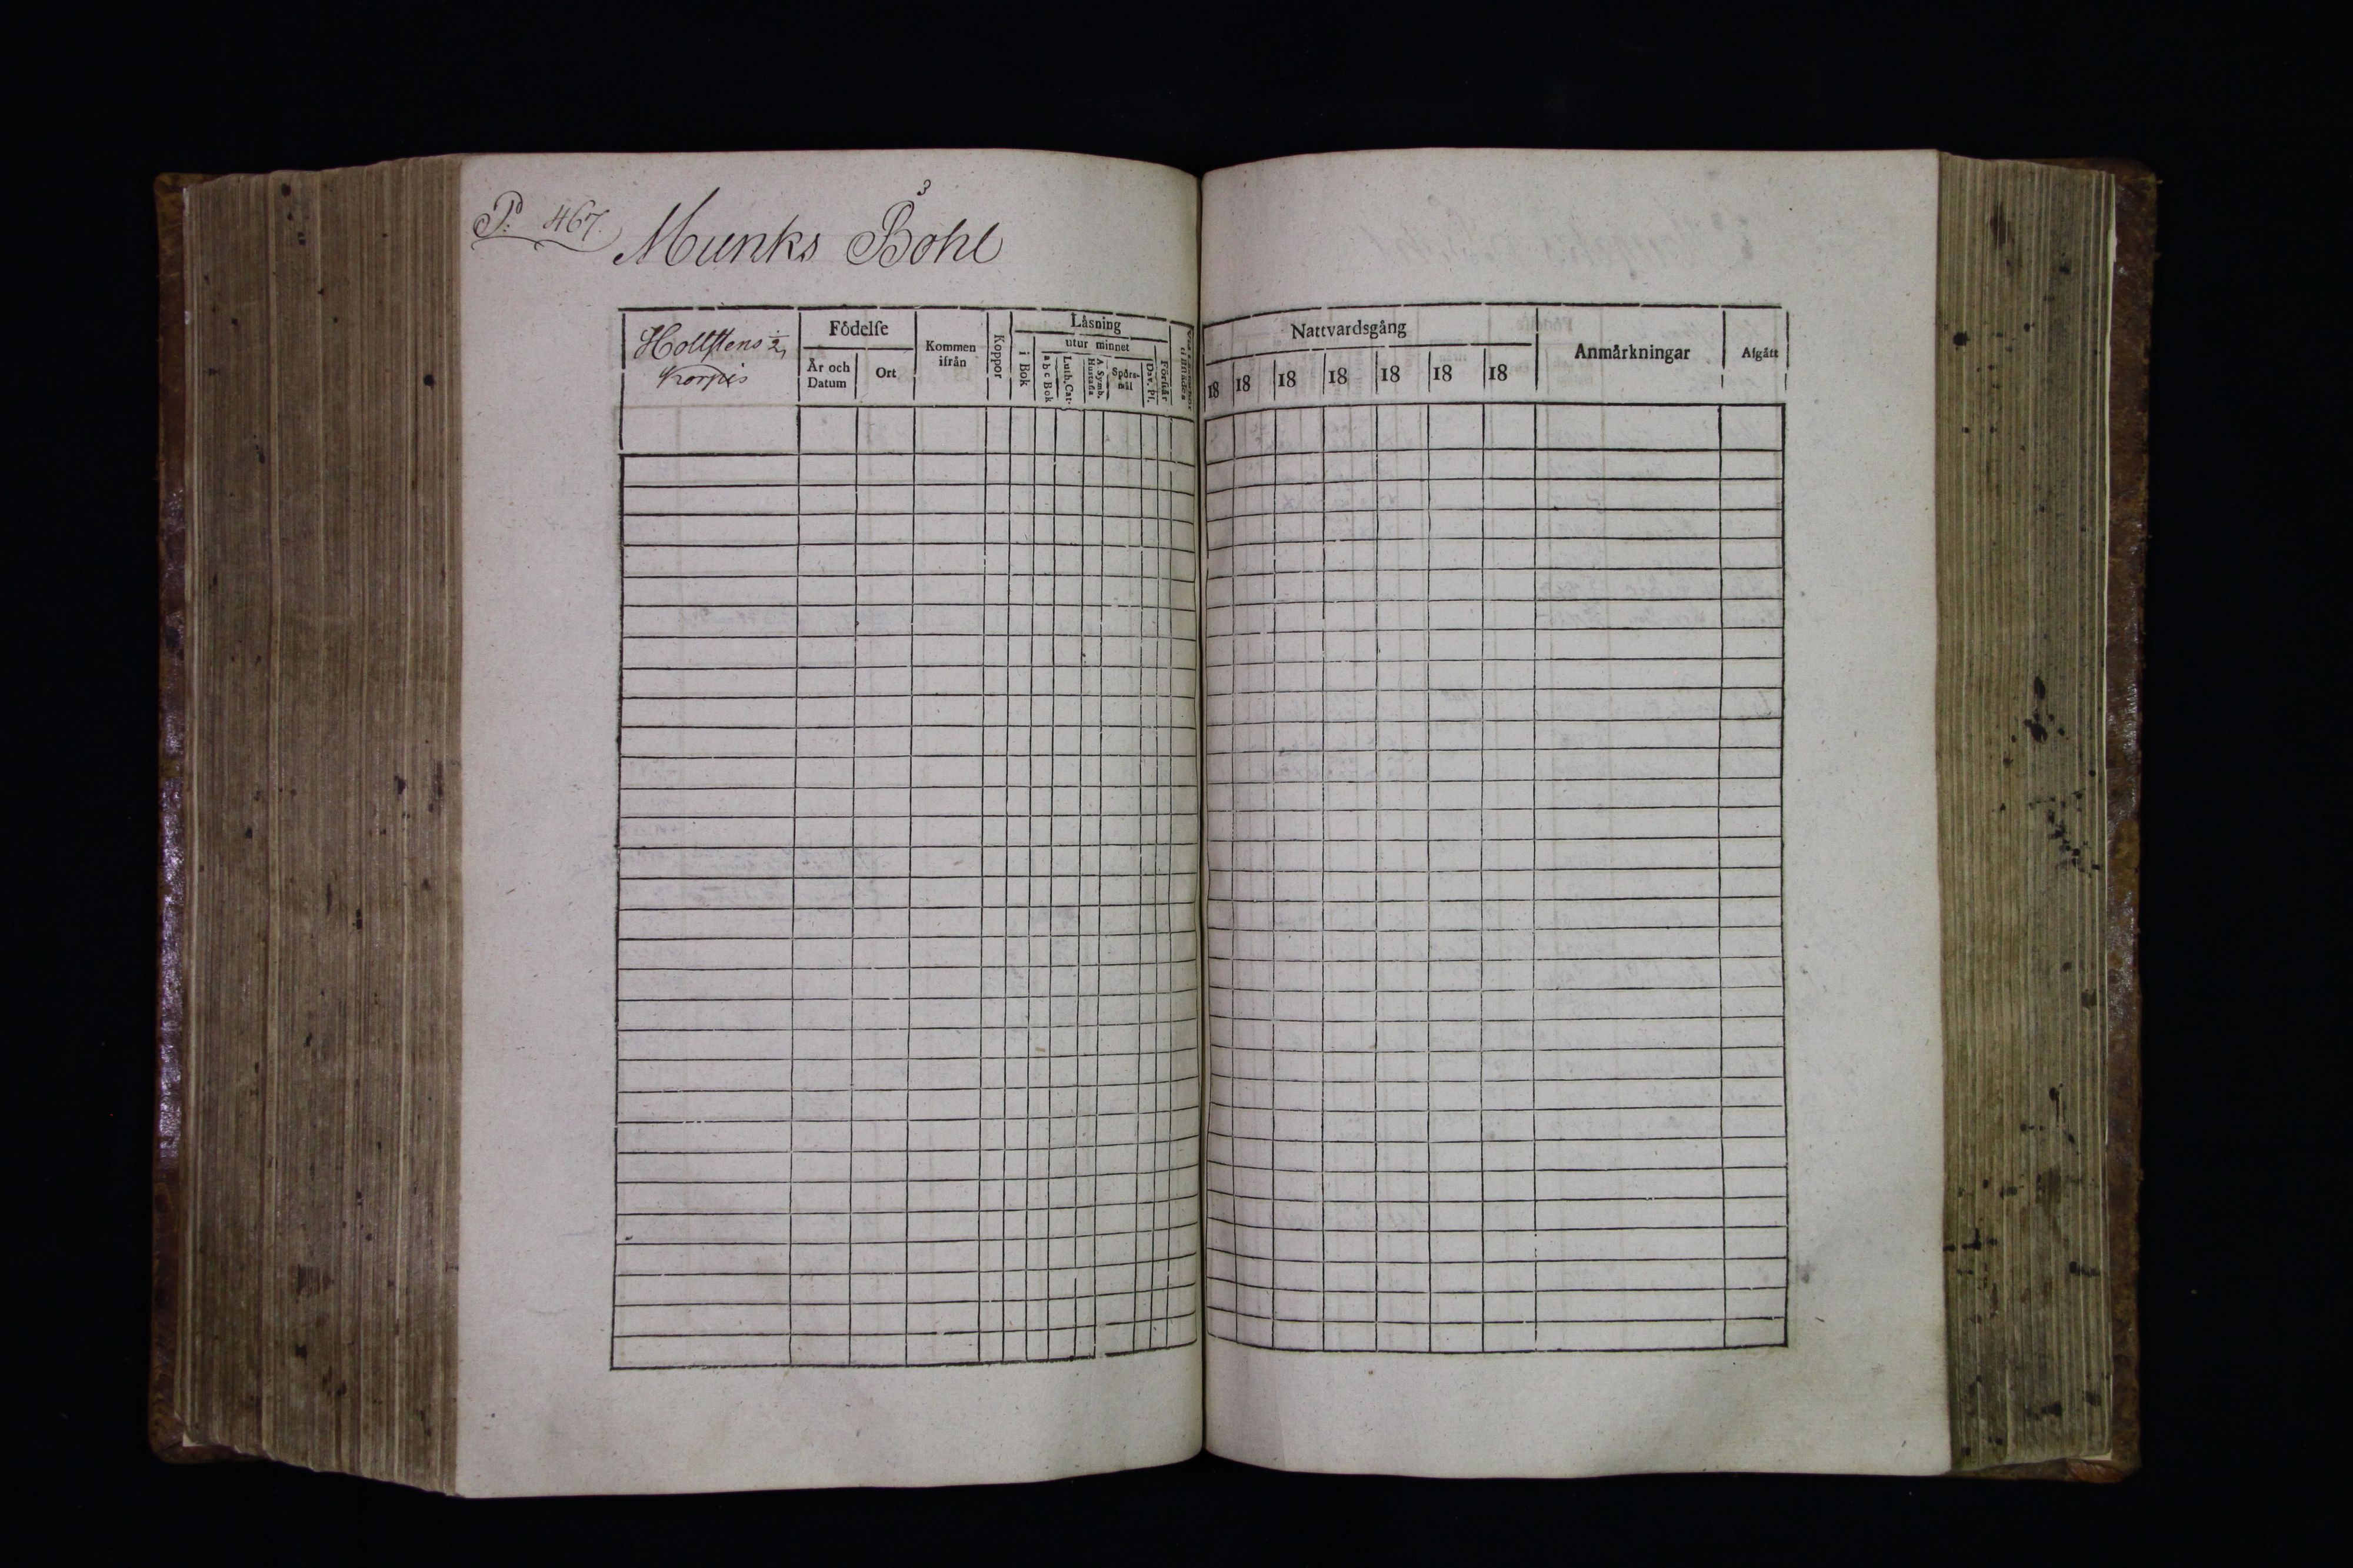 P. 467. Munks Bohl
Hollstens 1/2
Korpis
Födelse
År och Datum
Ort
Kommen ifrån
Koppor
Läsning
i Bok
utur minnet
a b c Bok
Luth. Cat.
A. Symb. Hustafla
Spörsmål
Dav. Ps.
Förstår
Nattvardsgång
18 18 18 18 18 18 18
Anmärkningar
Afgått